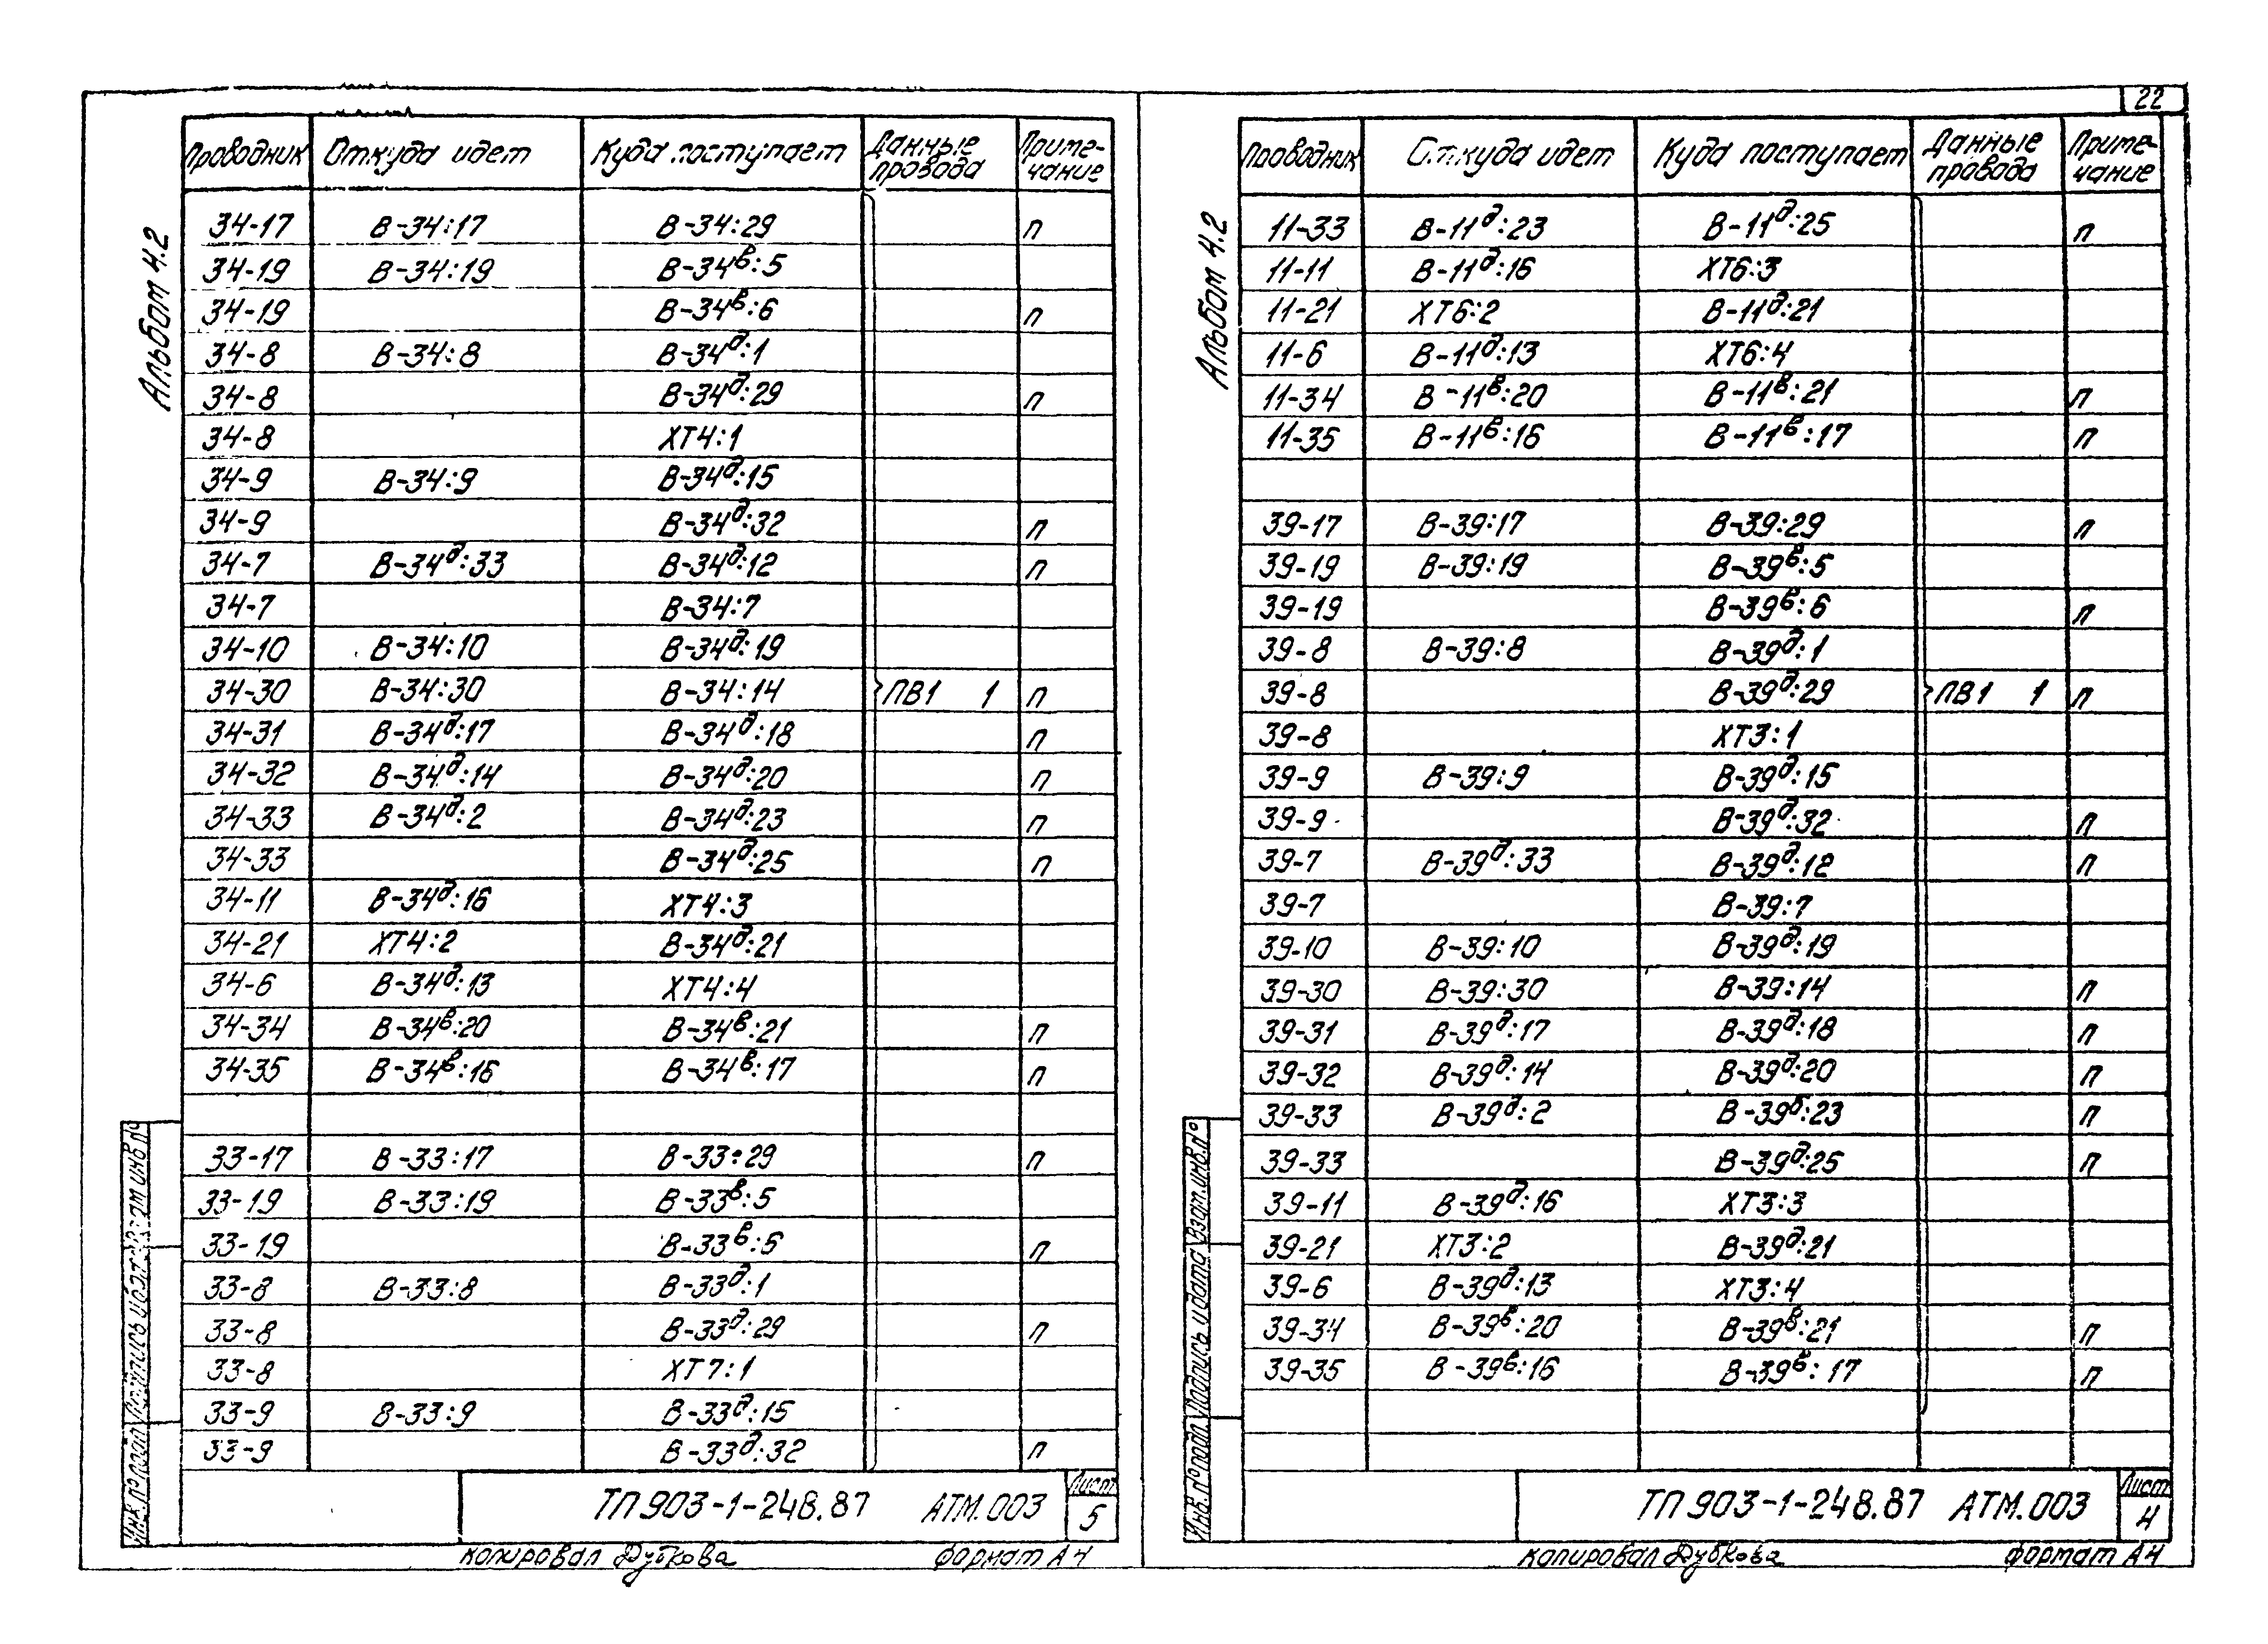 22
Альбом 4.2
Проводник Откуда идет Куда поступает Данные провода Приме-чание
34-17 В-34:17 В-34:29 п
34-19 В-34:19 В-34ᵇ:5
34-19 В-34ᵇ:6 п
34-8 В-34:8 В-34ᵈ:1
34-8 В-34ᵈ:29 п
34-8 ХТ4:1
34-9 В-34:9 В-34ᵈ:15
34-9 В-34ᵈ:32 п
34-7 В-34ᵈ:33 В-34ᵈ:12 п
34-7 В-34:7
34-10 В-34:10 В-34ᵈ:19
34-30 В-34:30 В-34:14 ПВ1 1 п
34-31 В-34ᵈ:17 В-34ᵈ:18 п
34-32 В-34ᵈ:14 В-34ᵈ:20 п
34-33 В-34ᵈ:2 В-34ᵈ:23 п
34-33 В-34ᵈ:25 п
34-11 В-34ᵈ:16 ХТ4:3
34-21 ХТ4:2 В-34ᵈ:21
34-6 В-34ᵈ:13 ХТ4:4
34-34 В-34ᵇ:20 В-34ᵇ:21 п
34-35 В-34ᵇ:16 В-34ᵇ:17 п
33-17 В-33:17 В-33:29 п
33-19 В-33:19 В-33ᵇ:5
33-19 В-33ᵇ:5 п
33-8 В-33:8 В-33ᵈ:1
33-8 В-33ᵈ:29 п
33-8 ХТ7:1
33-9 В-33:9 В-33ᵈ:15
33-9 В-33ᵈ:32 п
Инв.№ подл Подпись и дата Взам инв №
ТП 903-1-248.87 АТМ.003 Лист 5
копировал Дубкова формат А4
Альбом 4.2
Проводник Откуда идет Куда поступает Данные провода Приме-чание
11-33 В-11ᵈ:23 В-11ᵈ:25 п
11-11 В-11ᵈ:16 ХТ6:3
11-21 ХТ6:2 В-11ᵈ:21
11-6 В-11ᵈ:13 ХТ6:4
11-34 В-11ᵇ:20 В-11ᵇ:21 п
11-35 В-11ᵇ:16 В-11ᵇ:17 п
39-17 В-39:17 В-39:29 п
39-19 В-39:19 В-39ᵇ:5
39-19 В-39ᵇ:6 п
39-8 В-39:8 В-39ᵈ:1
39-8 В-39ᵈ:29 ПВ1 1 п
39-8 ХТ3:1
39-9 В-39:9 В-39ᵈ:15
39-9 В-39ᵈ:32 п
39-7 В-39ᵈ:33 В-39ᵈ:12 п
39-7 В-39:7
39-10 В-39:10 В-39ᵈ:19
39-30 В-39:30 В-39:14 п
39-31 В-39ᵈ:17 В-39ᵈ:18 п
39-32 В-39ᵈ:14 В-39ᵈ:20 п
39-33 В-39ᵈ:2 В-39ᵟ:23 п
39-33 В-39ᵈ:25 п
39-11 В-39ᵈ:16 ХТ3:3
39-21 ХТ3:2 В-39ᵈ:21
39-6 В-39ᵈ:13 ХТ3:4
39-34 В-39ᵇ:20 В-39ᵇ:21 п
39-35 В-39ᵇ:16 В-39ᵇ:17 п
Инв.№ подл. Подпись и дата Взам.инв.№
ТП 903-1-248.87 АТМ.003 Лист 4
копировал Дубкова формат А4